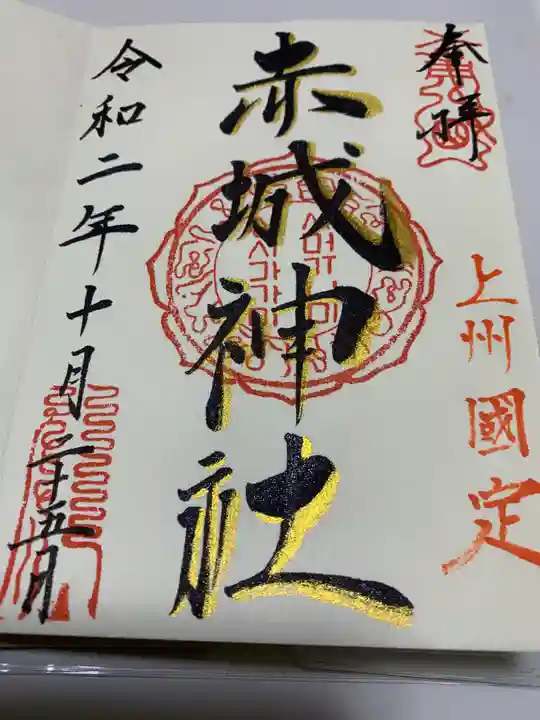 奉拝
上州國定
赤城神社
令和二年十月二十五日